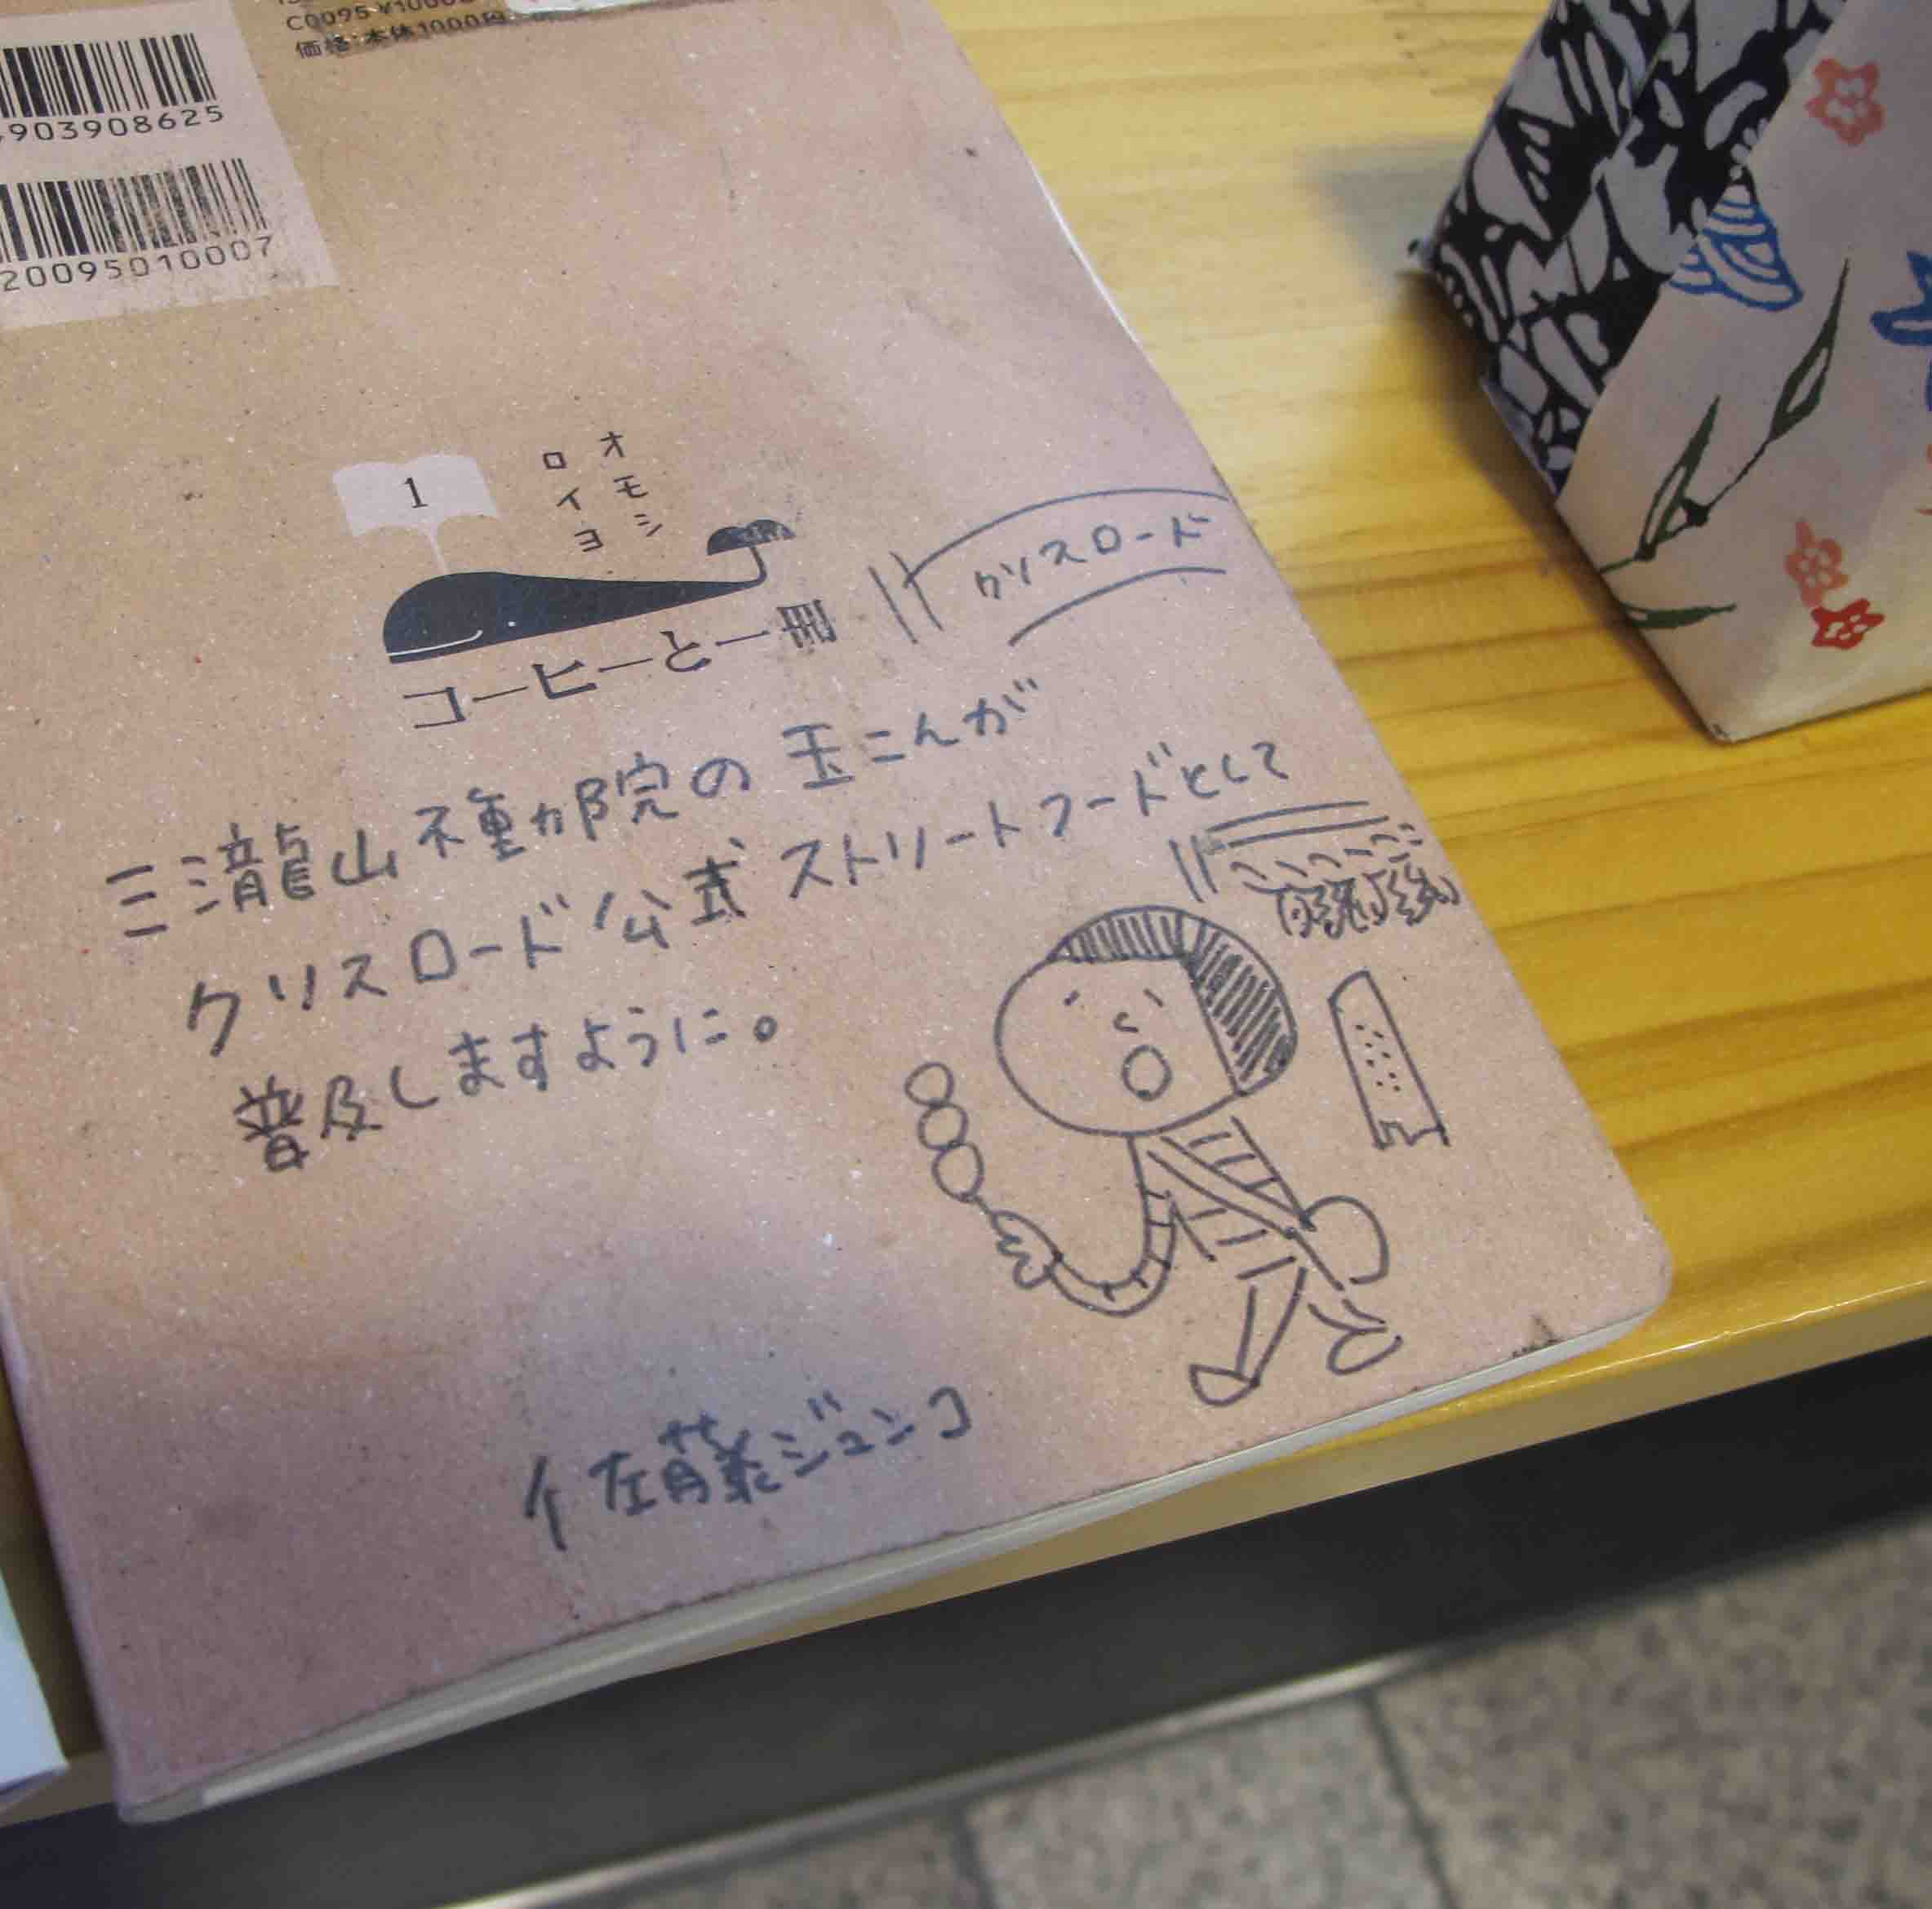 C0095 ¥1000E
価格:本体1000円
903908625
20095010007
1
オモシ
ロイヨ
コーヒーと一冊
クリスロード
三瀧山不動院の玉こんが
クリスロード公式ストリートフードとして
普及しますように。
佐藤ジュンコ